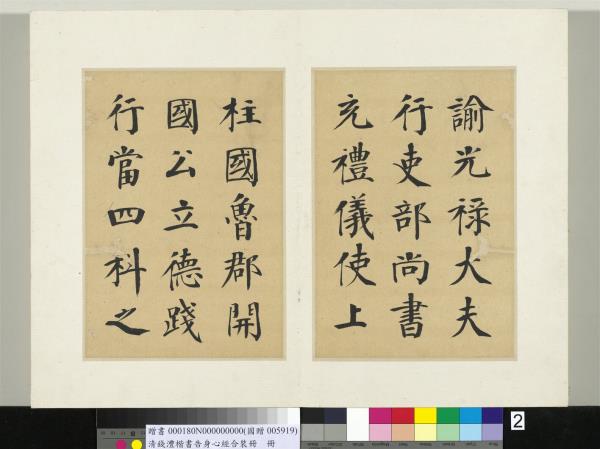 諭光禄大夫
行吏部尚書
充禮儀使上
柱國魯郡開
國公立德踐
行當四科之
2
贈書 000180N000000000(國贈 005919)
清錢灃楷書告身心經合裝冊 冊